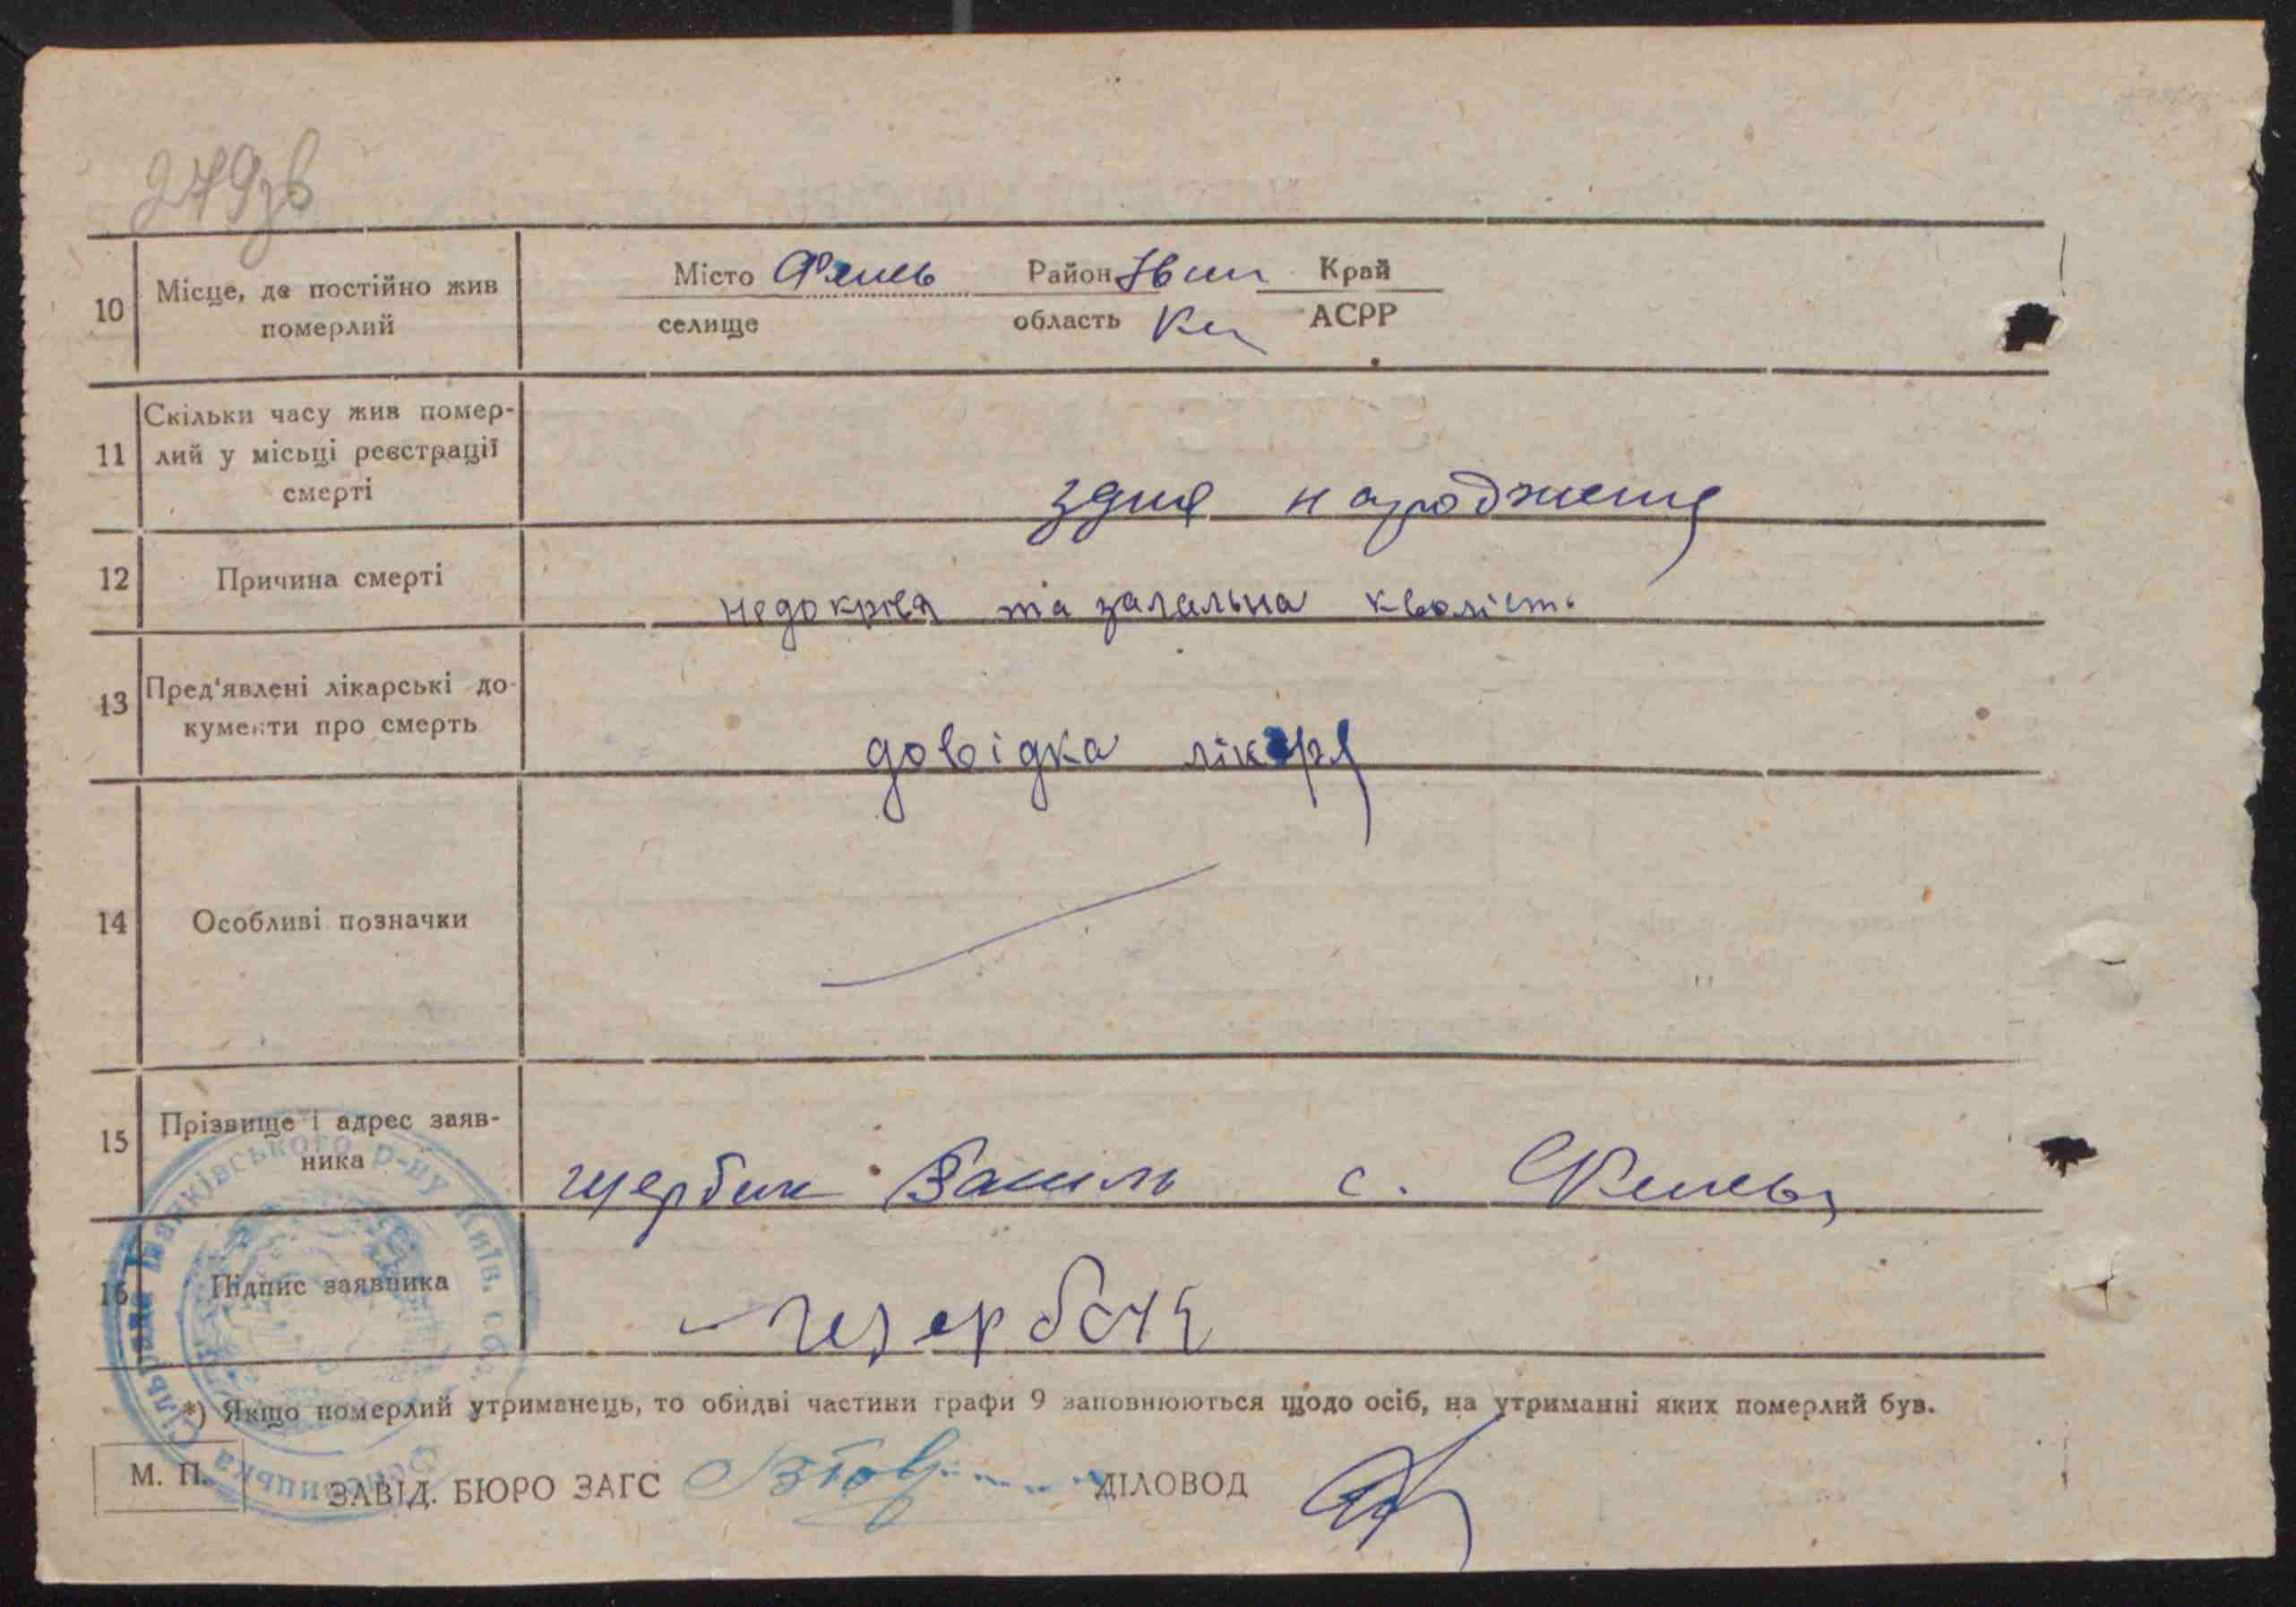 279зв
10 Місце, де постійно жив померлий
Місто Район Іван Край
селище область Ки АСРР
11 Скільки часу жив помер-
лий у місьці реєстрації
смерті
здня народження
12 Причина смерті
недокровя та загальна кволість
13 Пред'явлені лікарські до-
кументи про смерть
довідка лікаря
14 Особливі позначки
15 Прізвище і адрес заяв-
ника
Щербак Василь с.
16 Підпис заявника
Щербак
*) Якщо померлий утриманець, то обидві частини графи 9 заповнюються щодо осіб, на утриманні яких померлий був.
М. П. ЗАВІД. БЮРО ЗАГС ДІЛОВОД
сільрада Іванківського р-ну Київ. обл.